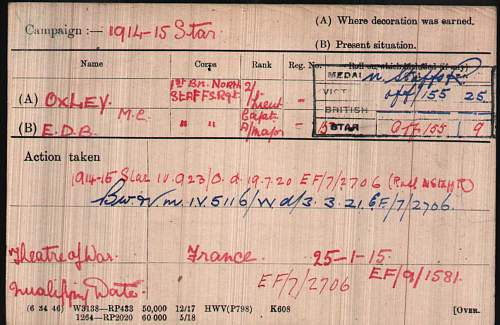 Campaign :— 1914-15 Star.
(A) Where decoration was earned.
(B) Present situation.
Name Corps Rank Reg. No.
(A) OXLEY. M.C. 1st Bn. North Staffs. Rgt 2/Lieut -
(B) E.D.B. " " Capt. A/Major -
MEDAL N Staff R
VICT off/155 25
BRITISH
STAR off/55 9
Action taken
1914-15 Star IV.923/O. d. 19.7.20 EF/7/2706
B.W.&V.m IV.5116/W d/3.3.21. EF/7/2706.
Theatre of War. France. 25-1-15.
Qualifying Date. EF/7/2706 EF/9/1581.
(6 34 46) W3138—RP433 50,000 12/17 HWV(P798) K608 [OVER.
1264—RP2020 60 000 5/18